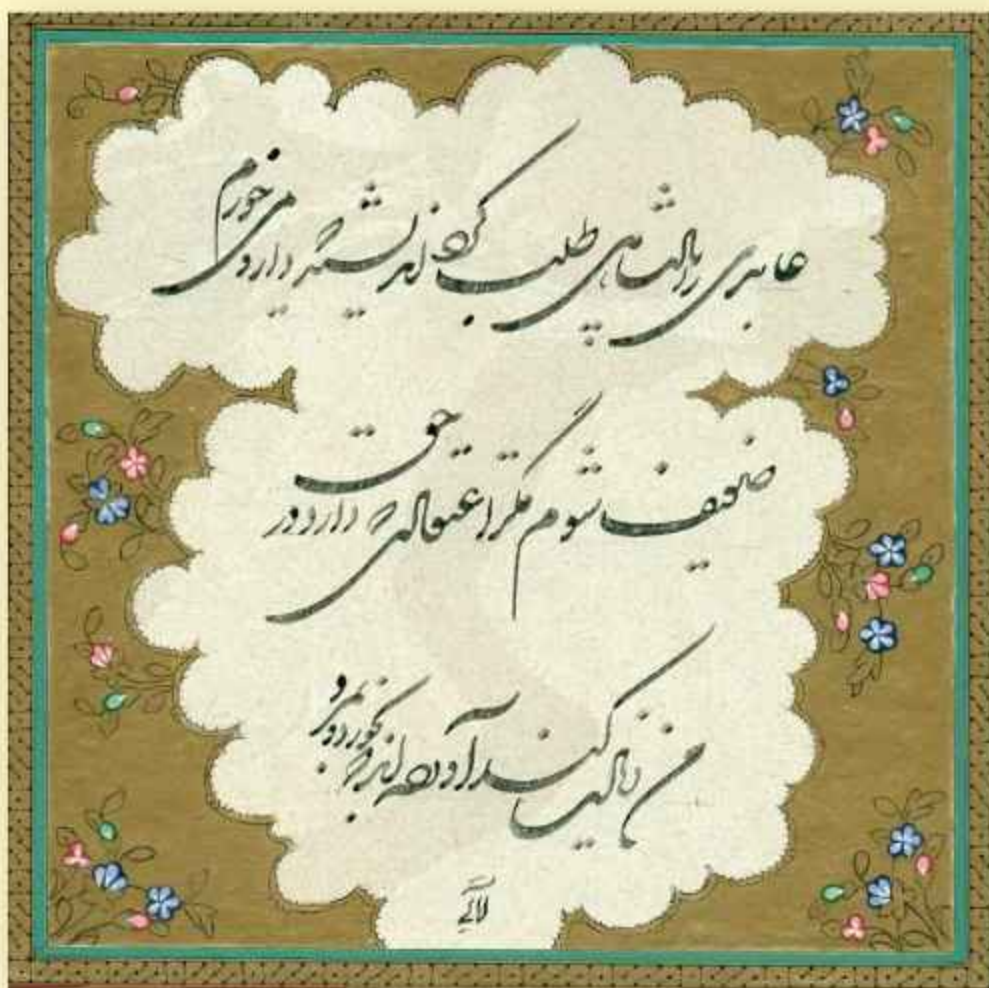 عابدی را پادشاهی طلب کرد اندیشید که دارویی خورم
ضعیف شوم مگر اعتقادی که دارد در حق
من زیادت کند آورده اند که بخورد و بمرد